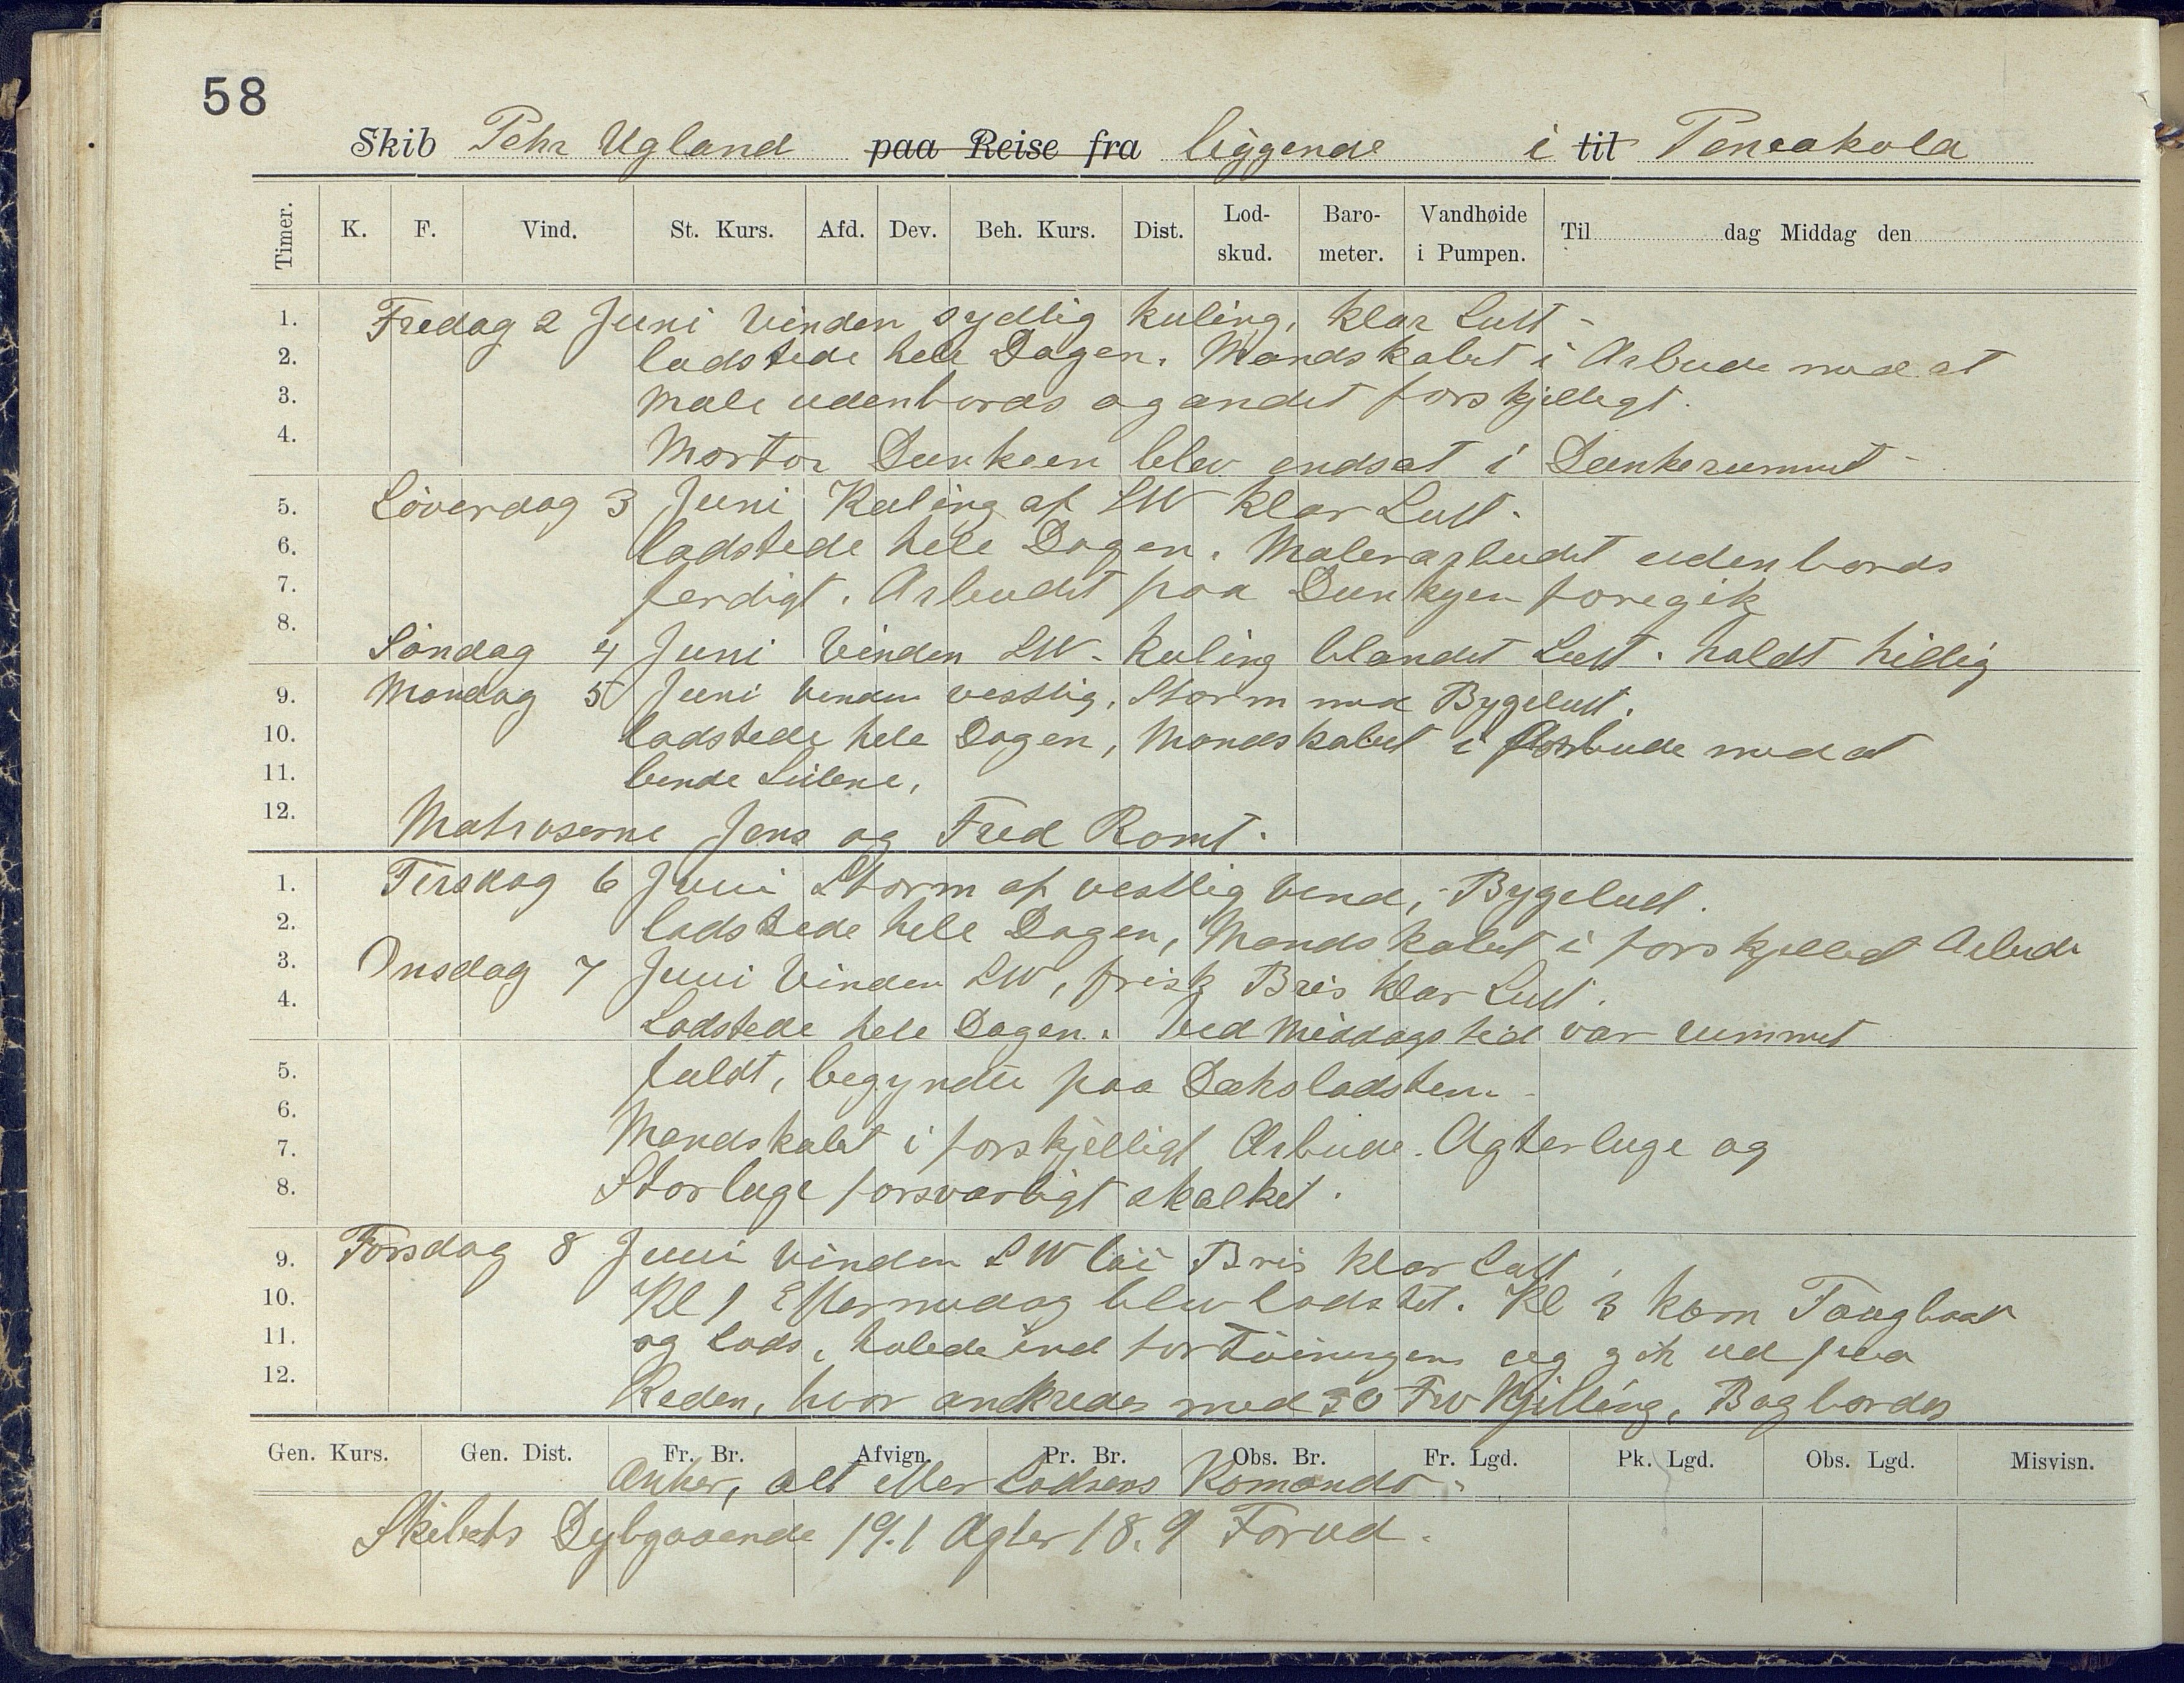 58
Skib Pehr Ugland paa Reise fra liggende i til Pensakola
Timer. K. F. Vind. St. Kurs. Afd. Dev. Beh. Kurs. Dist. Lod-skud. Baro-meter. Vandhøide i Pumpen. Til dag Middag den
1. Fredag 2 Juni Vinden sydlig kuling, klar Luft -
2. ladstede hele Dagen. Mandskabet i Arbeide med at
3. Male udenbords og andet forskjelligt.
4. Mortor Dunkeen blev endsat i Dunkerummet -
5. Löverdag 3 Juni Kuling af SW klar Luft.
6. ladstede hele Dagen. Malerarbeidet udenbords
7. ferdigt. Arbeidet paa Dunkyen foregik
8. Söndag 4 Juni Vinden SW. Kuling blandet Luft. holdt hellig
9. Mandag 5 Juni Vinden vestlig, Storm med Bygeluft.
10. ladstede hele Dagen, Mandskabet i Arbeide med at
11. bende Seilene,
12. Matroserne Jens og Fred Romt.
1. Tirsdag 6 Juni Storm af vestlig Vind, Bygeluft.
2. ladstede hele Dagen, Mandskabet i forskjelled Arbeide
3. Onsdag 7 Juni Vinden SW, frisk Bris klar Luft.
4. Ladstede hele Dagen. Ved Middagstid var rummet
5. fuldt, begyndte paa Dæksladsten.
6. Mandskabet i forskjelligt Arbeide. Agterluge og
7.
8. Storluge forsvarligt skalket.
9. Torsdag 8 Juni Vinden SW löi Bris klar Luft,
10. Kl 1 Eftermidag blev ladstet. Kl 3 kom Taugbaat
11. og Lods, halede ind fortöiningen og gik ud paa
12. Reden, hvor ankredes med 30 Fv Kjitting, Bagbords
Gen. Kurs. Gen. Dist. Fr. Br. Afvign. Pr. Br. Obs. Br. Fr. Lgd. Pk. Lgd. Obs. Lgd. Misvisn.
Anker, alt efter Lodsens Komando.
Skibets Dybgaaende 19.1 Agter 18.9 Forud.